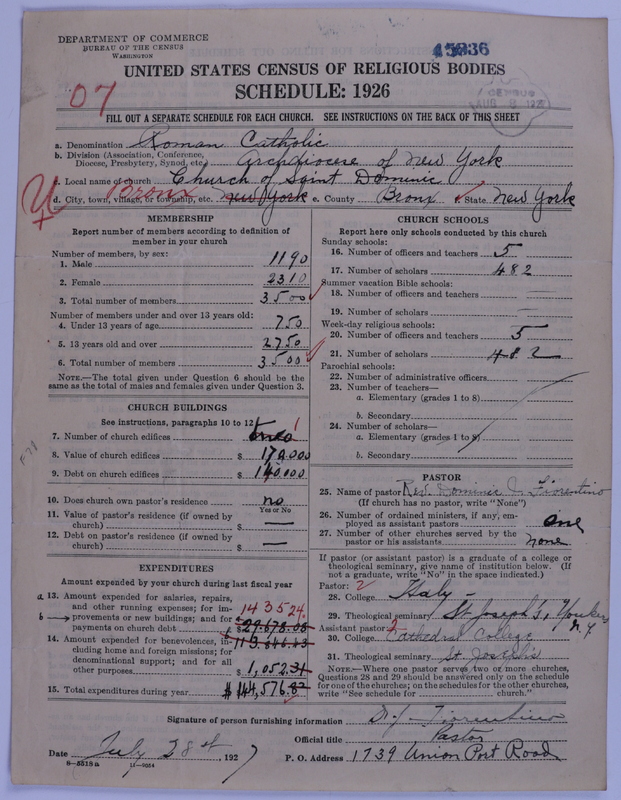 DEPARTMENT OF COMMERCE
BUREAU OF THE CENSUS
WASHINGTON
45236
UNITED STATES CENSUS OF RELIGIOUS BODIES
SCHEDULE: 1926
07
CENSUS
AUG 8 1927
FILL OUT A SEPARATE SCHEDULE FOR EACH CHURCH. SEE INSTRUCTIONS ON THE BACK OF THIS SHEET
a. Denomination Roman Catholic
b. Division (Association, Conference, Diocese, Presbytery, Synod, etc.) Archdiocese of New York
c. Local name of church Church of Saint Dominic
d. City, town, village, or township, etc. Bronx New York e. County Bronx State New York
MEMBERSHIP
Report number of members according to definition of member in your church
Number of members, by sex:
1. Male 1190
2. Female 2310
3. Total number of members 3500
Number of members under and over 13 years old:
4. Under 13 years of age 750
5. 13 years old and over 2750
6. Total number of members 3500
NOTE.—The total given under Question 6 should be the same as the total of males and females given under Question 3.
CHURCH BUILDINGS
See instructions, paragraphs 10 to 12
7. Number of church edifices 1
8. Value of church edifices $ 170.000
9. Debt on church edifices $ 140.000
10. Does church own pastor's residence no
Yes or No
11. Value of pastor's residence (if owned by church) $ —
12. Debt on pastor's residence (if owned by church) $ —
EXPENDITURES
Amount expended by your church during last fiscal year
a 13. Amount expended for salaries, repairs,
and other running expenses; for im-
b provements or new buildings; and for
payments on church debt $ 143524.
14. Amount expended for benevolences, in-
cluding home and foreign missions; for
denominational support; and for all
other purposes $ 1,052.31
15. Total expenditures during year $ 144,576.
CHURCH SCHOOLS
Report here only schools conducted by this church
Sunday schools:
16. Number of officers and teachers 5
17. Number of scholars 482
Summer vacation Bible schools:
18. Number of officers and teachers —
19. Number of scholars —
Week-day religious schools:
20. Number of officers and teachers 5
21. Number of scholars 482
Parochial schools:
22. Number of administrative officers
23. Number of teachers—
a. Elementary (grades 1 to 8)
b. Secondary
24. Number of scholars—
a. Elementary (grades 1 to 8)
b. Secondary
PASTOR
25. Name of pastor Rev. Dominic J. Fiorentino
(If church has no pastor, write "None")
26. Number of ordained ministers, if any, em-
ployed as assistant pastors one
27. Number of other churches served by the
pastor or his assistants none
If pastor (or assistant pastor) is a graduate of a college or
theological seminary, give name of institution below. (If
not a graduate, write "No" in the space indicated.)
Pastor: 2
28. College Italy —
29. Theological seminary St Joseph's, Yonkers N.Y.
Assistant pastor: 2
30. College Cathedral College
31. Theological seminary St. Joseph's
NOTE.—Where one pastor served two or more churches,
Questions 28 and 29 should be answered only on the schedule
for one of the churches; on the schedules for the other churches,
write "See schedule for ............ church."
Signature of person furnishing information D. J. Fiorentino
Official title Pastor
Date July 28th, 1927 P. O. Address 1739 Union Port Road
8—5518 a 11—9034